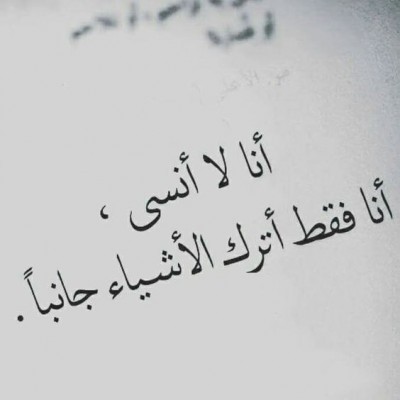 أنا لا أنسى ،
أنا فقط أترك الأشياء جانباً .